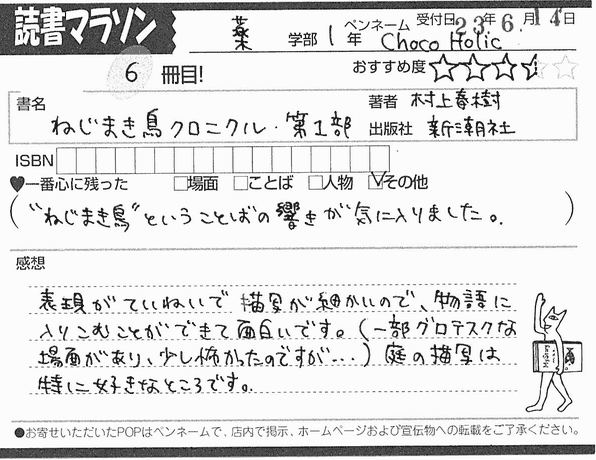 読書マラソン
薬 学部 1 年 ペンネーム Choco Holic 受付日 23年 6月 14日
6 冊目!
おすすめ度
書名 ねじまき鳥クロニクル・第1部
著者 村上春樹
出版社 新潮社
ISBN
♥一番心に残った □場面 □ことば □人物 ☑その他
(“ねじまき鳥”ということばの響きが気に入りました。)
感想
表現がていねいで描写が細かいので、物語に
入りこむことができて面白いです。(一部グロテスクな
場面があり、少し怖かったのですが...)庭の描写は
特に好きなところです。
●お寄せいただいたPOPはペンネームで、店内で掲示、ホームページおよび宣伝物への転載をご了承ください。